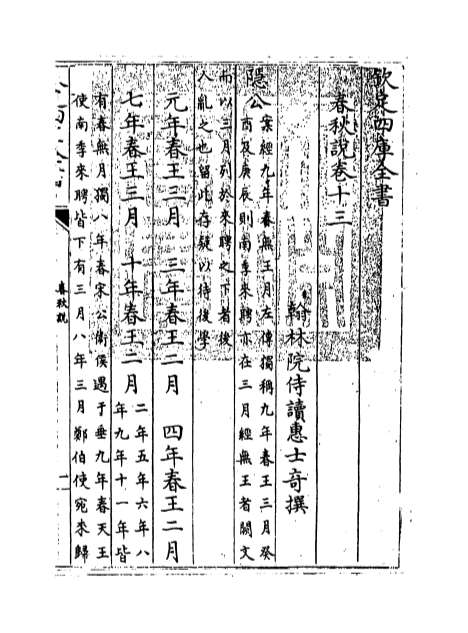 欽定四庫全書
春秋說卷十三
翰林院侍讀惠士奇撰
隱公
案經九年春無王月左傳獨稱九年春王三月癸
酉及庚辰則南季來聘亦在三月經無王者闕文
而以三月列於來聘之下者後
人亂之也留此存疑以待後學
元年春王三月 三年春王二月 四年春王二月
七年春王三月 十年春王二月
二年五年六年八
年九年十一年皆
有春無月獨八年春宋公衛侯遇于垂九年春天王
使南季來聘皆下有三月八年三月鄭伯使宛來歸
春秋說